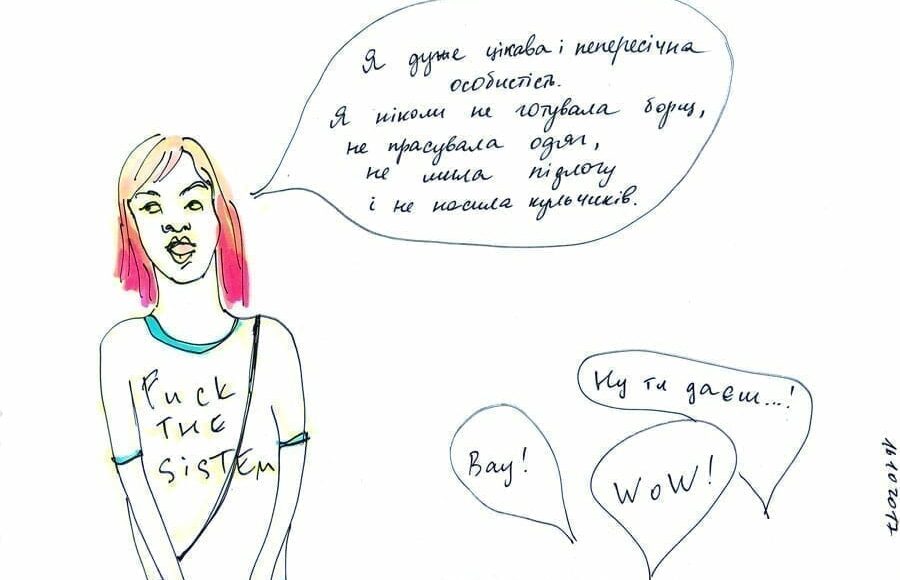 Я дуже цікава і непересічна
особистість.
Я ніколи не готувала борщ,
не прасувала одяг,
не мила підлогу
і не носила кульчиків.
Fuck
THE
SiSTEM
Вау!
WoW!
Ну ти даєш...!
16102017